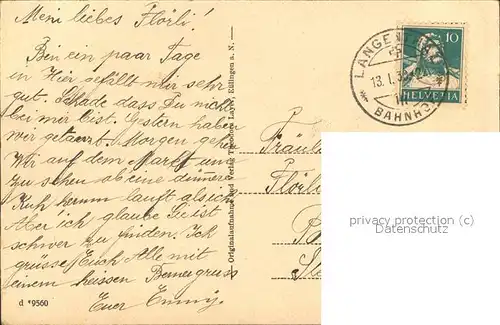 Mein liebes Flörli!
Bin ein paar Tage
in Hier gefällt mir sehr
gut. Schade dass Du nicht
bei mir bist. Gestern haben
wir getanzt. Morgen gehen
Wir auf dem Markt um
zu sehen ob eine
Kuh herum lauft als ich
Aber ich glaube Sie ist
schwer zu finden. Ich
grüsse Euch Alle mit
einem heissen Bernergruss
Euer Emmy.
d 19560
Originalaufnahme und Verlag Theodore Layer, Züllingen a. N.
LANGEN
13. I. 3
BAHNHO
10
HELVETIA
Fräul
Flörl
privacy protection (c)
www.oldthing.com